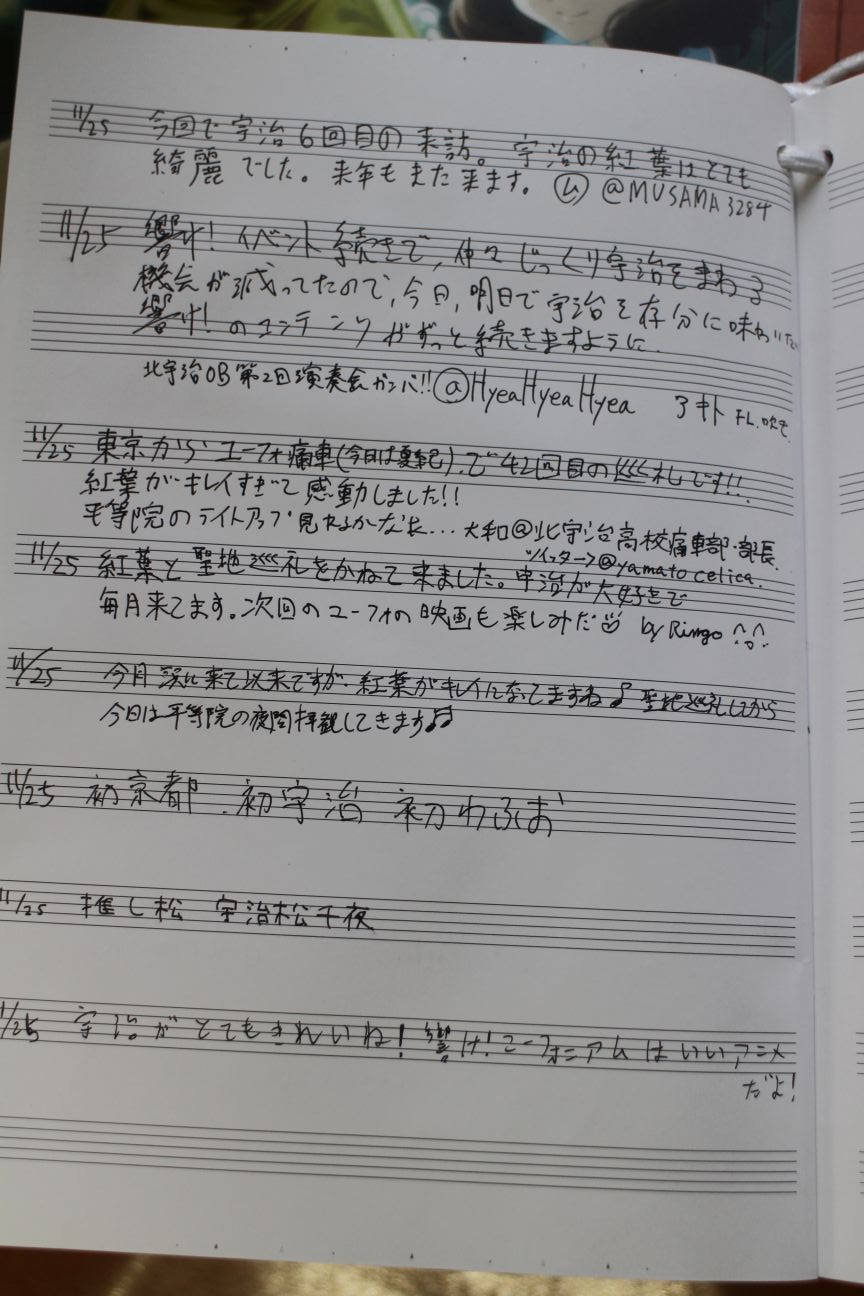 11/25 今回で宇治6回目の来訪。宇治の紅葉はとても
綺麗でした。来年もまた来ます。 @MUSAMA3284
11/25 響け!イベント続きで、仲々じっくり宇治をまわる
機会が減ってたので、今日,明日で宇治を存分に味わいたい
響け!のコンテンツがずっと続きますように.
北宇治OB第2回演奏会ガンバ!! @HyeaHyeaHyea FL.吹き
11/25 東京からユーフォ痛車(今日は夏紀)で42回目の巡礼です!!
紅葉がキレイすぎて感動しました!!
平等院のライトアップ見れるかなぁ... 大和@北宇治高校痛車部・部長
ツイッター→@yamatocelica.
11/25 紅葉と聖地巡礼をかねて来ました。宇治が大好きで
毎月来てます。次回のユーフォの映画も楽しみだ by Ringo
11/25 今月 に来て以来ですが、紅葉がキレイになってますね♪ 聖地巡礼してから
今日は平等院の夜間拝観してきます♫
11/25 初京都 . 初宇治 初わふお
11/25 推し松 宇治松千夜
11/25 宇治がとてもきれいね!響け!ユーフォニアムはいいアニメ
だよ!